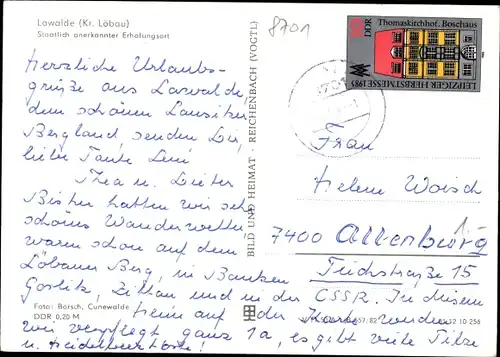 Lawalde (Kr. Löbau)
Staatlich anerkannter Erholungsort
8701
Herzliche Urlaubs-
grüße aus Lawalde,
dem schönen Lausitzer
Bergland senden Dir,
liebe Tante Leni
Thea u. Dieter
Bisher hatten wir sehr
schönes Wanderwetter
waren schon auf dem
Löbauer Berg, in Bautzen
Görlitz, Zittau und in der CSSR. In diesem
Heim auf der Karte werden
wir verpflegt ganz 1a, es gibt viele Pilze
u. Heidelbeeren!
Foto: Borsch, Cunewalde
DDR 0,20 M
BILD UND HEIMAT · REICHENBACH (VOGTL)
10 DDR
Thomaskirchhof, Boschaus
LEIPZIGER HERBSTMESSE 1985
Frau
Helene Woisch
7400 Altenburg
Teichstraße 15
12 10 256